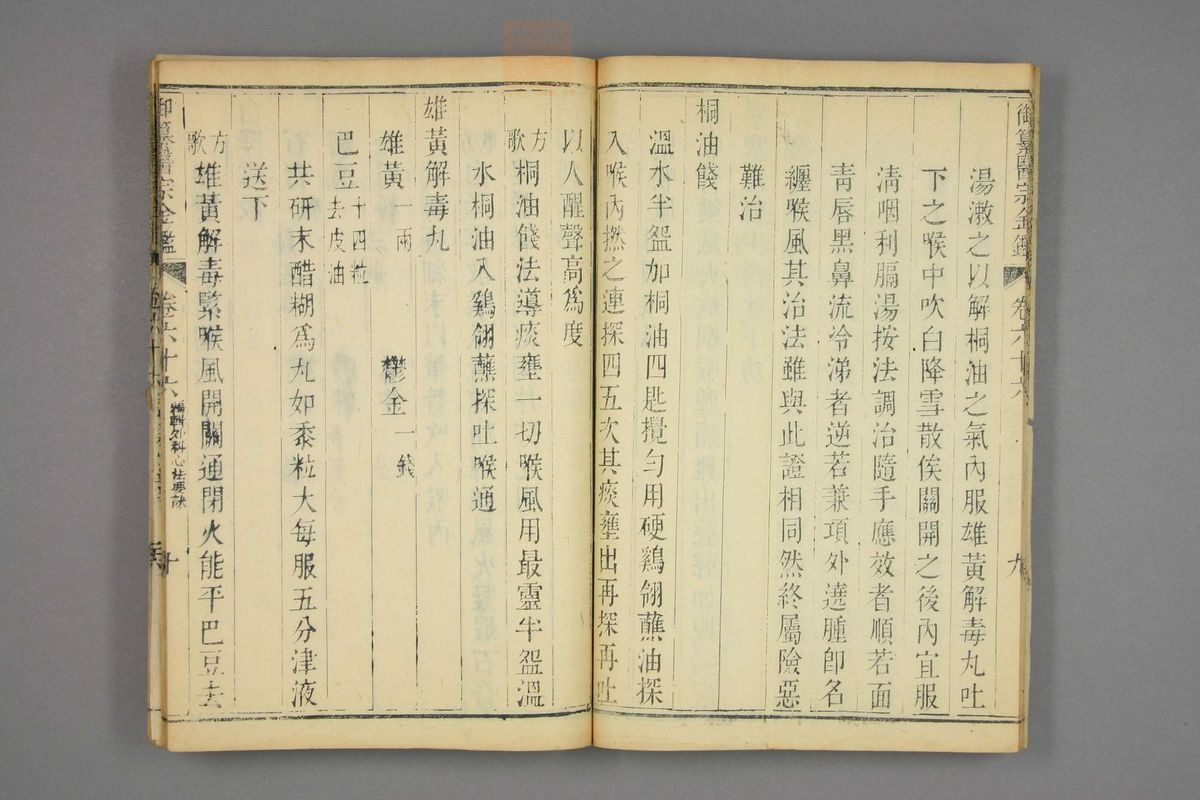 御纂醫宗金鑑 卷六十六 九
湯漱之以解桐油之氣內服雄黃解毒丸吐
下之喉中吹白降雪散俟關開之後內宜服
淸咽利膈湯按法調治隨手應效者順若面
靑唇黑鼻流冷涕者逆若兼項外遶腫卽名
纏喉風其治法雖與此證相同然終屬險惡
難治
桐油餞
溫水半盌加桐油四匙攪勻用硬鷄翎蘸油探
入喉內撚之連探四五次其痰壅出再探再吐
以人醒聲高爲度
方歌 桐油餞法導痰壅一切喉風用最靈半盌溫
水桐油入鷄翎蘸探吐喉通
雄黃解毒丸
雄黃一兩 鬱金一錢
巴豆十四粒去皮油
共研末醋糊爲丸如黍粒大每服五分津液
送下
方歌 雄黃解毒緊喉風開關通閉火能平巴豆去
御纂醫宗金鑑 卷六十六 編輯外科心法要訣 十